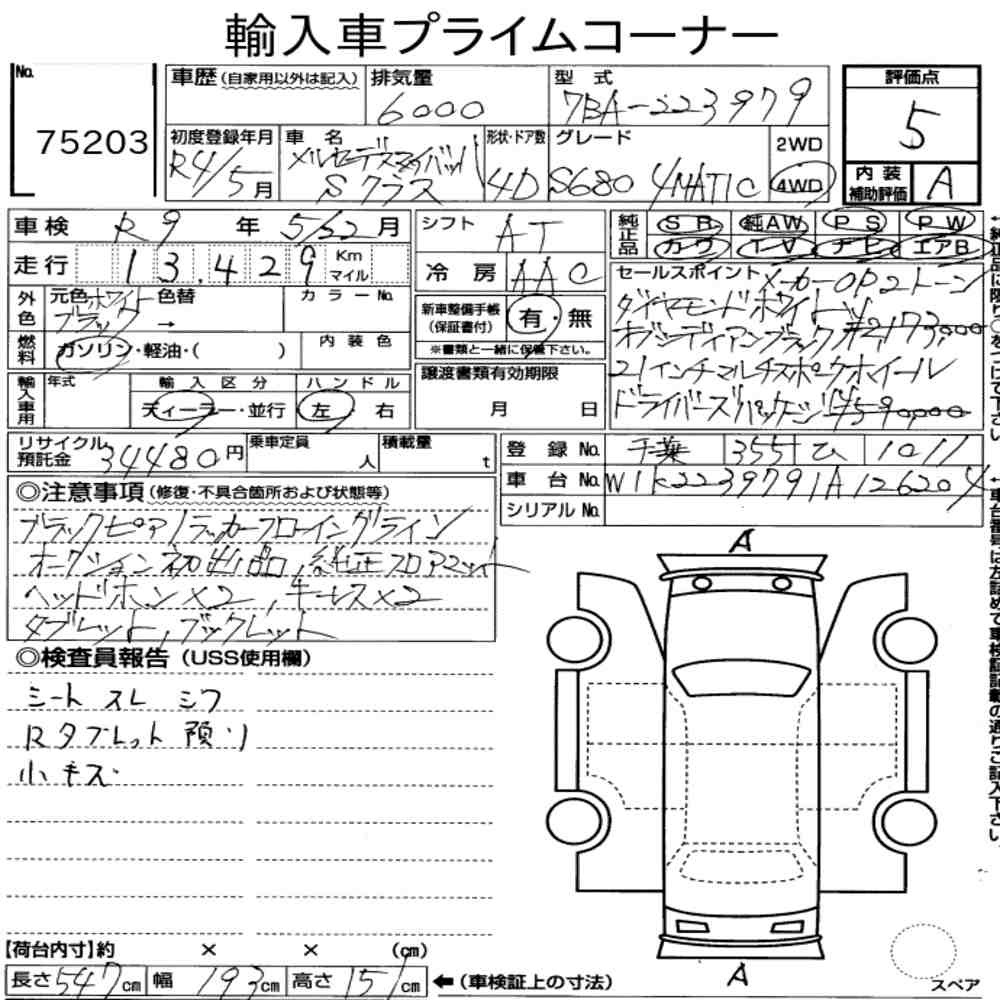 輸入車プライムコーナー
No. 75203
車歴 (自家用以外は記入)
排気量 6000
型式 7BA-223979
評価点 5
初度登録年月 R4/5月
車名 メルセデスマイバッハ Sクラス
形状・ドア数 4D
グレード S680 4MATIC
2WD
4WD
内装補助評価 A
車検 R9年 5/22月
シフト AT
純正品 SR 純AW PS PW
カワ TV ナビ エアB
走行 13,429 Km マイル
冷房 AAC
外色 元色 ホワイト ブラック → 色替
カラーNo.
新車整備手帳 (保証書付) 有・無
※書類と一緒に保管下さい。
燃料 ガソリン・軽油・( )
内装色
セールスポイント メーカーOP2トーン
ダイヤモンドホワイト
オブシディアンブラック ¥2173000
21インチマルチスポークホイール
ドライバーズパッケージ ¥590000
輸入車用 年式
輸入区分 ディーラー・並行
ハンドル 左・右
譲渡書類有効期限
月 日
リサイクル預託金 34480円
乗車定員 人
積載量 t
登録No. 千葉 355 ひ 1011
車台No. W1K2239791A126204
シリアルNo.
◎注意事項 (修復・不具合箇所および状態等)
ブラックピアノラッカーフローイングライン
オークション初出品, 純正フロアマット
ヘッドホン×2, キーレス×2
タブレット, ブックレット
◎検査員報告 (USS使用欄)
シート スレ シワ
Rタブレット 預り
小キズ
A
A
スペア
【荷台内寸】約 × × (cm)
長さ 547cm 幅 193cm 高さ 151cm ←(車検証上の寸法)
↑純正品に限り○をつけて下さい。
↑車台番号は左詰めで車検証記載の通りご記入下さい。